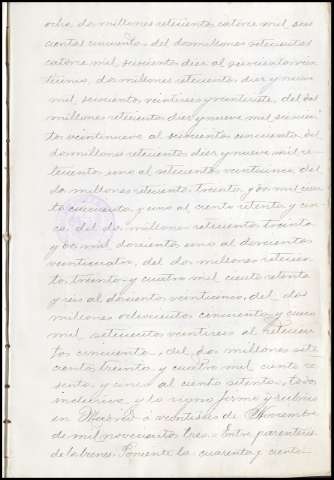 ocho dos millones setecientos catorce mil seis
cientos cincuenta, del dos millones setecientos
catorce mil, seiscientos diez al seiscientos vein
tiuno, dos millones setecientos diez y nueve
mil, seiscientos, veintiseis y veintisiete, del dos
millones setecientos diez y nueve mil seiscien
tos veintinueve al seiscientos cincuenta, del
dos millones setecientos diez y nueve mil se
tecientos uno al setecientos veinticinco, del
dos millones setecientos treinta y dos mil cien
to cincuenta y uno al ciento setenta y cin
co, del dos millones setecientos treinta
y dos mil doscientos uno al doscientos
veinticuatro, del dos millones setecien
tos, treinta y cuatro mil ciento setenta
y seis al doscientos veinticinco, del dos
millones ochocientos cincuenta y cinco
mil setecientos veintiseis al setecien
tos cincuenta, del dos millones sete
cientos treinta y cuatro mil ciento se
senta y cinco al ciento setenta, todos
inclusive, y lo signo firmo y rubrico
en Madrid a veintiseis de Noviembre
de mil novecientos tres = Entre parentesis
de la breves. Poniente la cuarenta y ciento